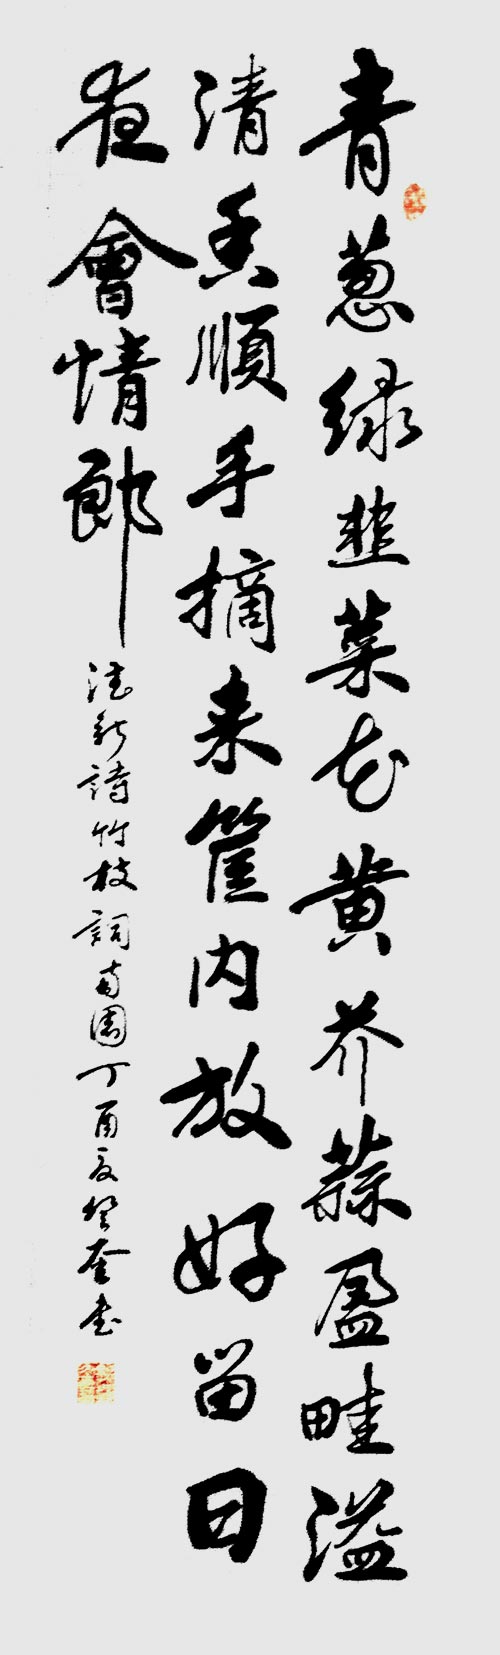 青葱绿韭菜花黄芥蒜盈畦溢
清香順手摘来筐内放好留日
夜會情郎
德新詩竹枝詞南園丁酉夏癸奎书